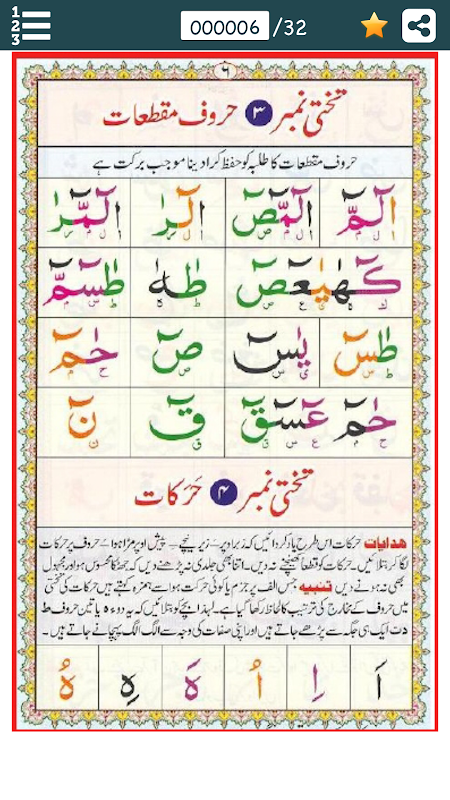 1
2
3
000006 /32
٦
تختی نمبر ٣ حروف مقطعات
حروف مقطعات کا طلبہ کو حفظ کرا دینا موجب برکت ہے
الٓمّٓ الٓمّٓصٓ الٓرٰ الٓمّٓرٰ
كٓهٰيٰعٓصٓ طٰهٰ طٰسٓمّٓ
طٰسٓ يٰسٓ صٓ حٰمٓ
حٰمٓ عٓسٓقٓ قٓ نٓ
تختی نمبر ٤ حَرَکات
ھدایات حرکات اس طرح یاد کروائیں کہ زبر اوپر زیر نیچے پیش اوپر مڑا ہوا ہے حروف پر حرکات
لگا کر بتلائیں۔ حرکات کو قطعاً کھینچنے نہ دیں۔ اتنا بھی جلدی نہ پڑھنے دیں کہ جھٹکا محسوس ہو اور مجہول
بھی نہ ہونے دیں تنبیه جس الف پر جزم یا کوئی حرکت ہو اسے ہمزہ کہتے ہیں حرکات کی تختی
میں حروف کے مخارج کی ترتیب کا لحاظ رکھا گیا ہے۔ لہذا بچے کو بتلائیں کہ یہ دو یا تین حروف ط
دت ایک ہی جگہ سے پڑھے جاتے ہیں اور اپنی صفات کی وجہ سے الگ الگ پہچانے جاتے ہیں۔
اَ اِ اُ هَ هِ هُ